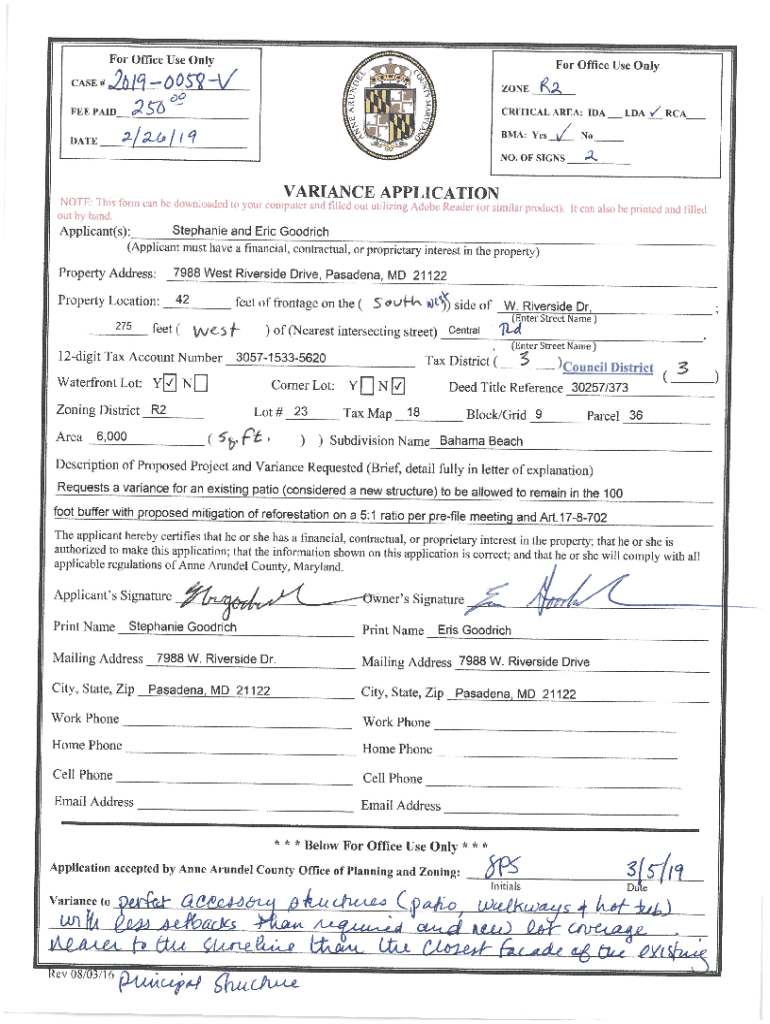 For Office Use Only
CASE # 2019-0058-V
FEE PAID 250 00
DATE 2/26/19
ANNE ARUNDEL COUNTY MARYLAND
For Office Use Only
ZONE R2
CRITICAL AREA: IDA LDA ✓ RCA
BMA: Yes ✓ No
NO. OF SIGNS 2
VARIANCE APPLICATION
NOTE: This form can be downloaded to your computer and filled out utilizing Adobe Reader (or similar product). It can also be printed and filled
out by hand.
Applicant(s): Stephanie and Eric Goodrich
(Applicant must have a financial, contractual, or proprietary interest in the property)
Property Address: 7988 West Riverside Drive, Pasadena, MD 21122
Property Location: 42 feet of frontage on the ( South west ) side of W. Riverside Dr, ;
(Enter Street Name )
275 feet ( west ) of (Nearest intersecting street) Central Rd .
(Enter Street Name )
12-digit Tax Account Number 3057-1533-5620 Tax District ( 3 ) Council District ( 3 )
Waterfront Lot: Y ✓ N Corner Lot: Y N ✓ Deed Title Reference 30257/373
Zoning District R2 Lot # 23 Tax Map 18 Block/Grid 9 Parcel 36
Area 6,000 ( Sq. ft. ) ) Subdivision Name Bahama Beach
Description of Proposed Project and Variance Requested (Brief, detail fully in letter of explanation)
Requests a variance for an existing patio (considered a new structure) to be allowed to remain in the 100
foot buffer with proposed mitigation of reforestation on a 5:1 ratio per pre-file meeting and Art.17-8-702
The applicant hereby certifies that he or she has a financial, contractual, or proprietary interest in the property; that he or she is
authorized to make this application; that the information shown on this application is correct; and that he or she will comply with all
applicable regulations of Anne Arundel County, Maryland.
Applicant's Signature Owner's Signature
Print Name Stephanie Goodrich Print Name Eris Goodrich
Mailing Address 7988 W. Riverside Dr. Mailing Address 7988 W. Riverside Drive
City, State, Zip Pasadena, MD 21122 City, State, Zip Pasadena, MD 21122
Work Phone Work Phone
Home Phone Home Phone
Cell Phone Cell Phone
Email Address Email Address
* * * Below For Office Use Only * * *
Application accepted by Anne Arundel County Office of Planning and Zoning: SPS 3/5/19
Initials Date
Variance to perfect accessory structures (patio, walkways & hot tub)
with less setbacks than required and new lot coverage
nearer to the shoreline than the closest facade of the existing
Rev 08/03/16 principal structure